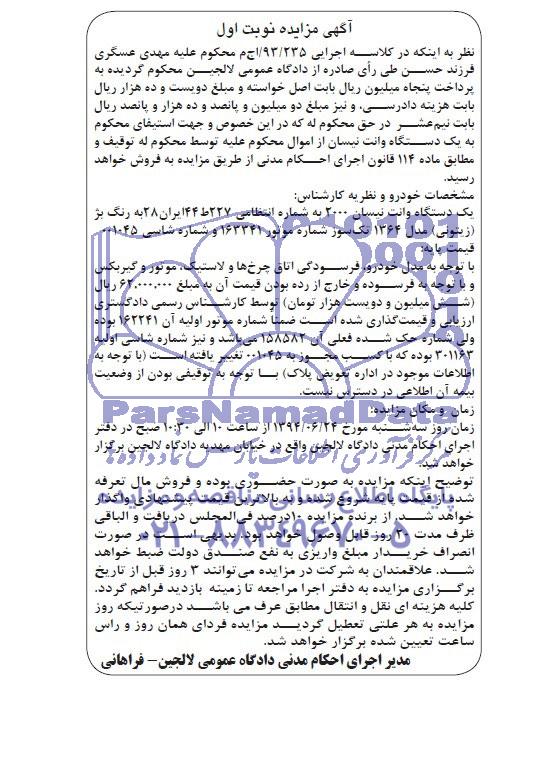 آگهی مزایده نوبت اول
نظر به اینکه در کلاسه اجرایی ۹۳/۲۳۵/اج‌م محکوم علیه مهدی عسگری
فرزند حسن طی رأی صادره از دادگاه عمومی لالجین محکوم گردیده به
پرداخت پنجاه میلیون ریال بابت اصل خواسته و مبلغ دویست و ده هزار ریال
بابت هزینه دادرسی، و نیز مبلغ دو میلیون و پانصد و ده هزار و پانصد ریال
بابت نیم‌عشر در حق محکوم له که در این خصوص و جهت استیفای محکوم
به یک دستگاه وانت نیسان از اموال محکوم علیه توسط محکوم له توقیف و
مطابق ماده ۱۱۴ قانون اجرای احکام مدنی از طریق مزایده به فروش خواهد
رسید.
مشخصات خودرو و نظریه کارشناس:
یک دستگاه وانت نیسان ۲۰۰۰ به شماره انتظامی ۲۲۷ط۴۴ایران۲۸به رنگ بژ
(زیتونی) مدل ۱۳۶۴ تک‌سوز شماره موتور ۱۶۳۳۴۱ و شماره شاسی ۰۰۱۰۴۵
قیمت پایه:
با توجه به مدل خودرو، فرسودگی اتاق چرخ‌ها و لاستیک، موتور و گیربکس
و با توجه به فرسوده و خارج از رده بودن قیمت آن به مبلغ ۶۲,۰۰۰,۰۰۰ ریال
(شش میلیون و دویست هزار تومان) توسط کارشناس رسمی دادگستری
ارزیابی و قیمت‌گذاری شده است ضمنا شماره موتور اولیه آن ۱۶۲۲۴۱ بوده
ولی شماره حک شده فعلی آن ۱۵۸۵۸۲ می‌باشد و نیز شماره شاسی اولیه
۳۰۱۱۶۳ بوده که با کسب مجوز به ۰۰۱۰۴۵ تغییر یافته است (با توجه به
اطلاعات موجود در اداره تعویض پلاک) با توجه به توقیفی بودن از وضعیت
بیمه آن اطلاعی در دسترس نیست.
زمان و مکان مزایده:
زمان روز سه‌شنبه مورخ ۱۳۹۴/۰۶/۲۴ از ساعت ۱۰ الی ۱۰:۳۰ صبح در دفتر
اجرای احکام مدنی دادگاه لالجین واقع در خیابان مهدیه دادگاه لالجین برگزار
خواهد شد.
توضیح اینکه مزایده به صورت حضوری بوده و فروش مال تعرفه
شده از قیمت پایه شروع شده و به بالاترین قیمت پیشنهادی واگذار
خواهد شد. از برنده مزایده ۱۰درصد فی‌المجلس دریافت و الباقی
ظرف مدت ۲۰ روز قابل وصول خواهد بود. بدیهی است در صورت
انصراف خریدار مبلغ واریزی به نفع صندوق دولت ضبط خواهد
شد. علاقمندان به شرکت در مزایده می‌توانند ۳ روز قبل از تاریخ
برگزاری مزایده به دفتر اجرا مراجعه تا زمینه بازدید فراهم گردد.
کلیه هزینه ای نقل و انتقال مطابق عرف می باشد درصورتیکه روز
مزایده به هر علتی تعطیل گردید مزایده فردای همان روز و راس
ساعت تعیین شده برگزار خواهد شد.
مدیر اجرای احکام مدنی دادگاه عمومی لالجین- فراهانی
ParsNamadData
مرکز فرآوری اطلاعات پارس نماد داده‌ها
پایگاه اطلاع رسانی مناقصه و مزایده
۰۲۱-۸۸۳۴۹۶۷۰-۵